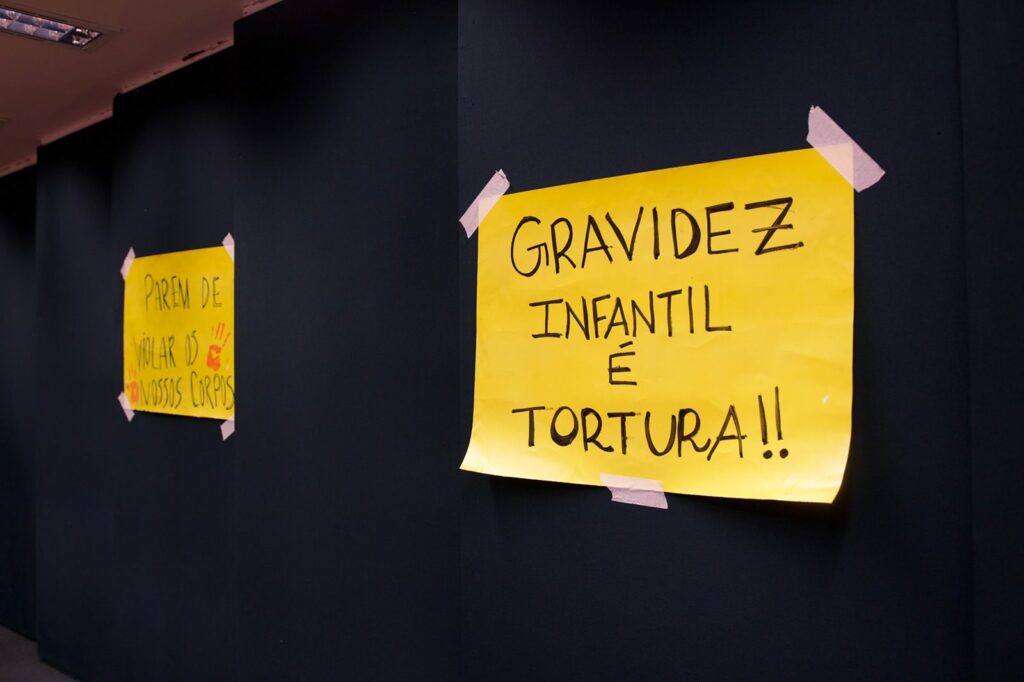 PAREM DE
VIOLAR OS
NOSSOS CORPOS
GRAVIDEZ
INFANTIL
É
TORTURA!!